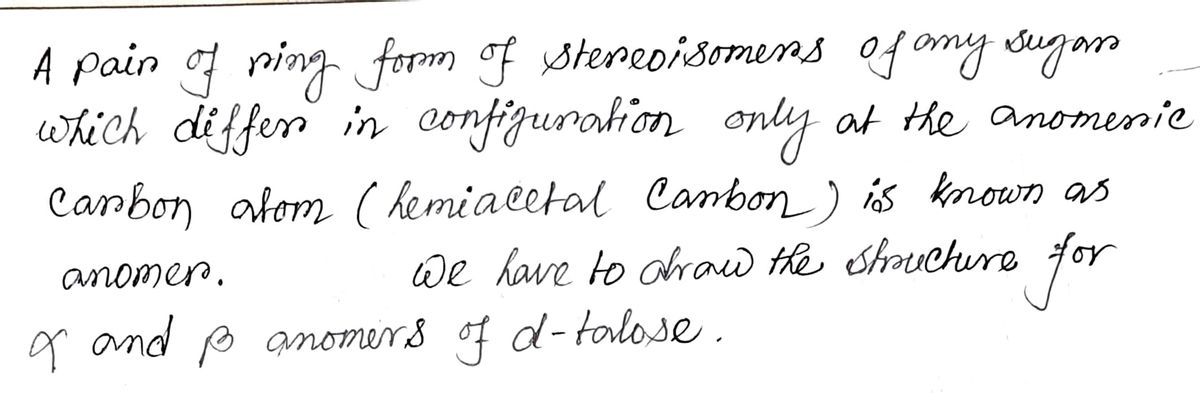 A pair of ring form of stereoisomers of any sugar
which differ in configuration only at the anomeric
Carbon atom (hemiacetal Carbon) is known as
anomer. We have to draw the structure for
α and β anomers of d-talose.